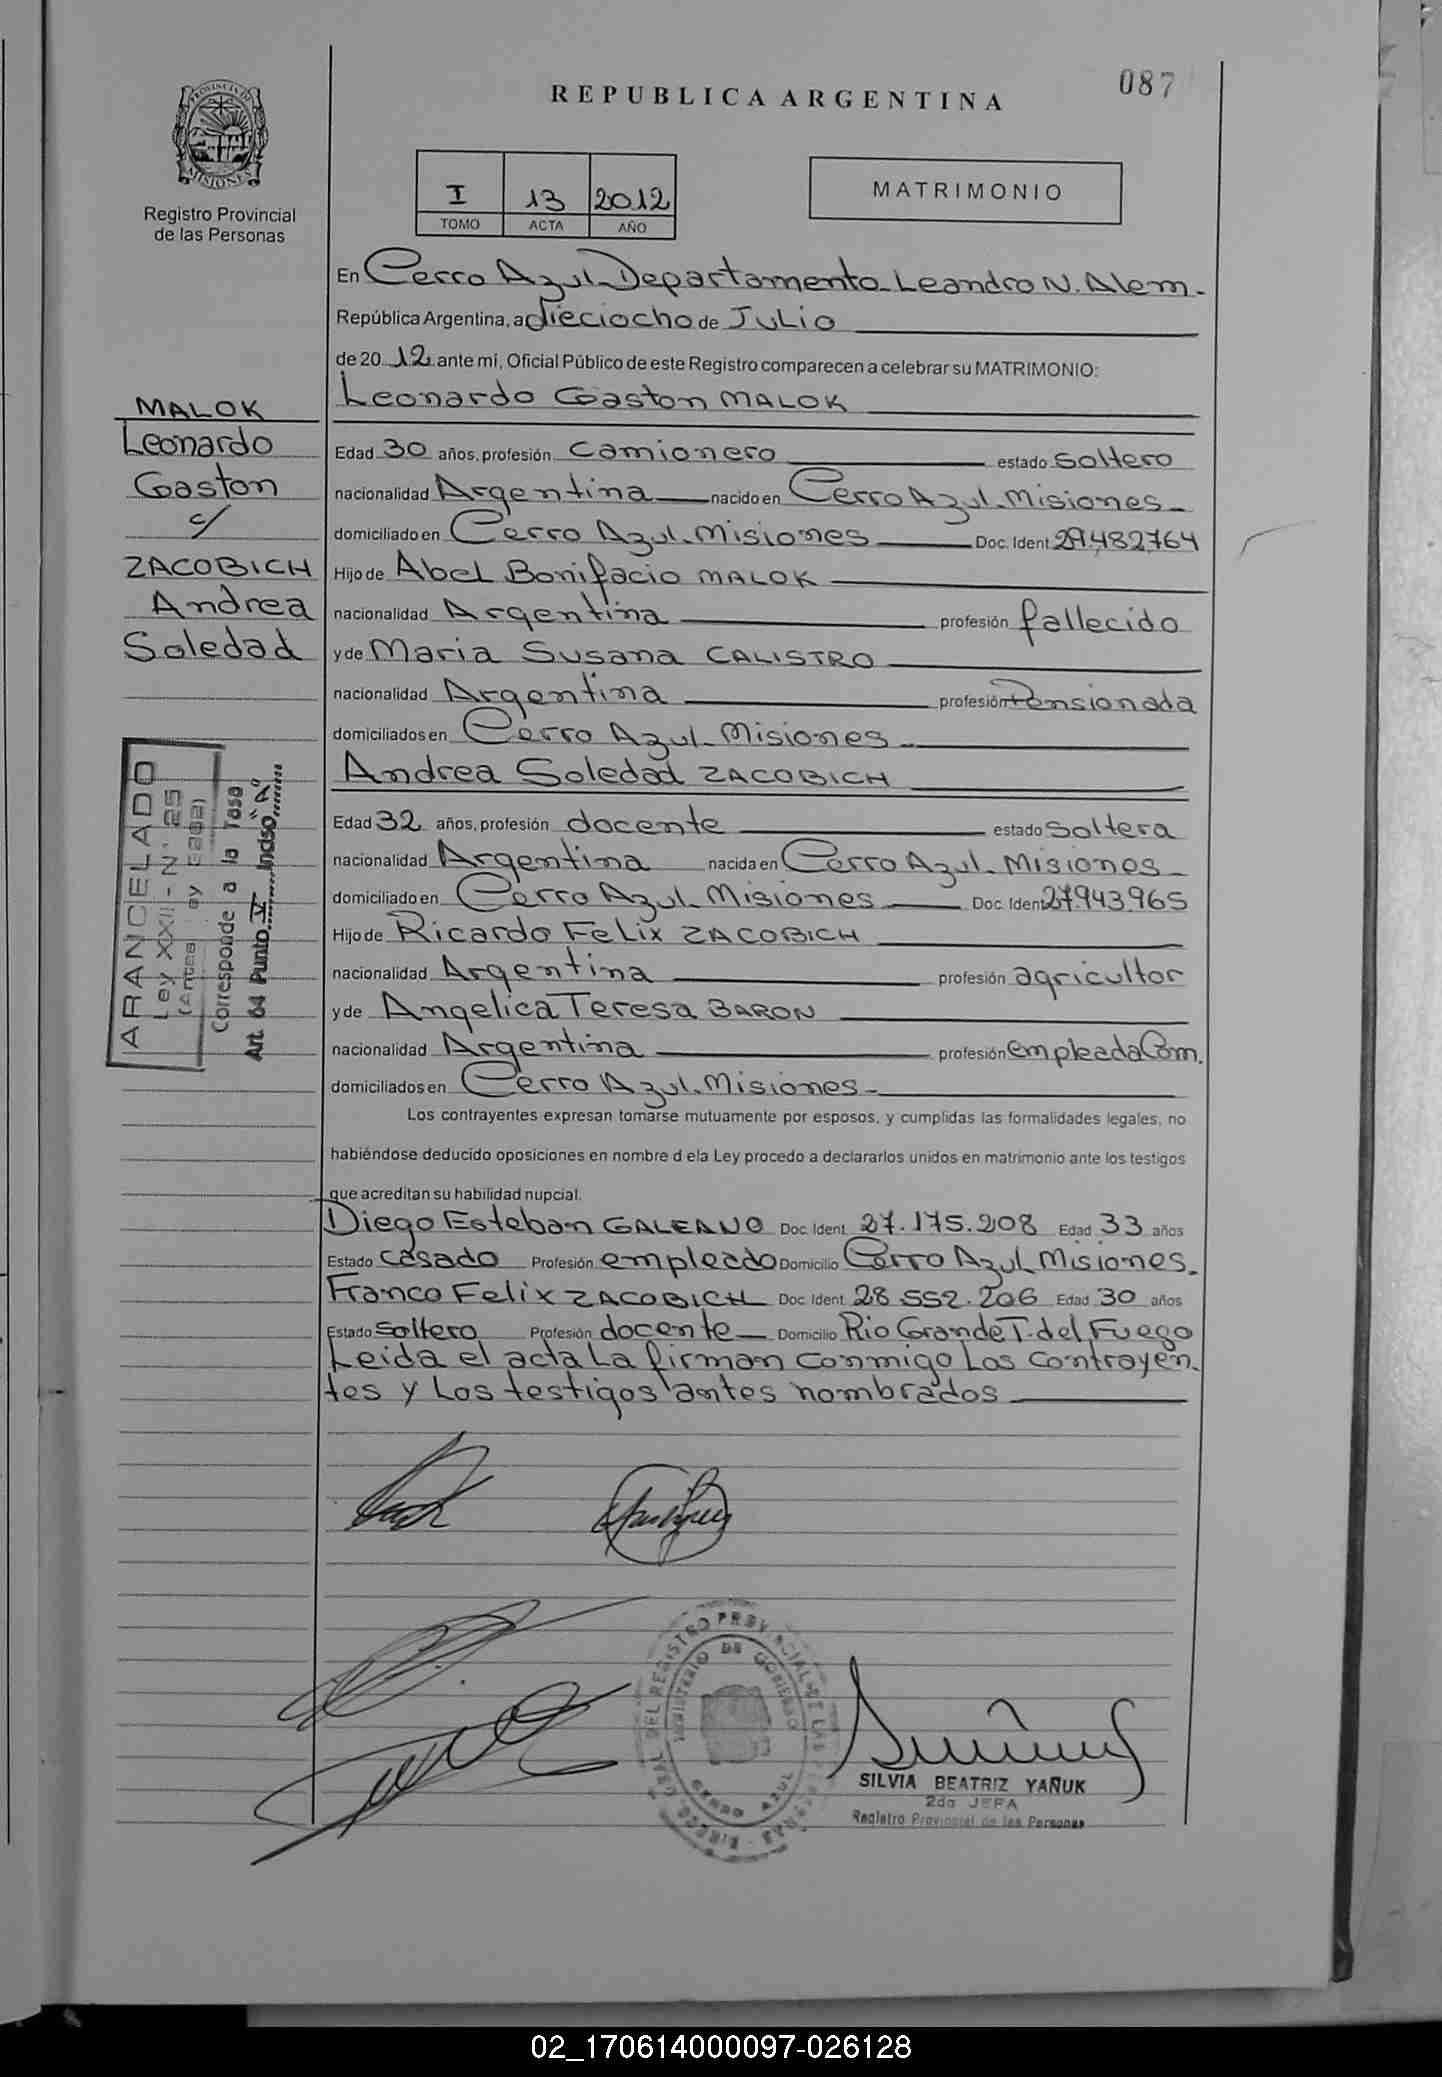 087
REPUBLICA ARGENTINA
PROVINCIA DE MISIONES
Registro Provincial
de las Personas
I 13 2012
TOMO ACTA AÑO
MATRIMONIO
En Cerro Azul Departamento Leandro N. Alem-
República Argentina, a dieciocho de Julio
de 20 12 ante mí, Oficial Público de este Registro comparecen a celebrar su MATRIMONIO:
Leonardo Gaston MALOK
Edad 30 años, profesión camionero estado soltero
nacionalidad Argentina nacido en Cerro Azul. Misiones-
domiciliado en Cerro Azul. Misiones Doc. Ident 29.482764
Hijo de Abel Bonifacio MALOK
nacionalidad Argentina profesión fallecido
y de Maria Susana CALISTRO
nacionalidad Argentina profesión Pensionada
domiciliados en Cerro Azul. Misiones-
Andrea Soledad ZACOBICH
Edad 32 años, profesión docente estado soltera
nacionalidad Argentina nacida en Cerro Azul. Misiones-
domiciliado en Cerro Azul. Misiones Doc. Ident 27943.965
Hijo de Ricardo Felix ZACOBICH
nacionalidad Argentina profesión agricultor
y de Angelica Teresa BARON
nacionalidad Argentina profesión empleada Com.
domiciliados en Cerro Azul. Misiones-
Los contrayentes expresan tomarse mutuamente por esposos, y cumplidas las formalidades legales, no
habiéndose deducido oposiciones en nombre d ela Ley procedo a declararlos unidos en matrimonio ante los testigos
que acreditan su habilidad nupcial.
Diego Esteban GALEANO Doc. Ident 27.175.208 Edad 33 años
Estado casado Profesión empleado Domicilio Cerro Azul Misiones.
Franco Felix ZACOBICH Doc. Ident 28.552.206 Edad 30 años
Estado soltero Profesión docente Domicilio Rio Grande T. del Fuego
Leida el acta La firman conmigo Los contrayen-
tes y Los testigos antes nombrados
MALOK
Leonardo
Gaston
c/
ZACOBICH
Andrea
Soledad
ARANCELADO
Ley XXII - N° 25
(Antes Ley
Corresponde a la Tasa
Art. 64 Punto V Inciso "A"
DIRECC. GRAL. DEL REGISTRO PROVINCIAL DE LAS PERSONAS
MINISTERIO DE GOBIERNO
CERRO AZUL
SILVIA BEATRIZ YAÑUK
2da JEFA
Registro Provincial de las Personas
02_170614000097-026128